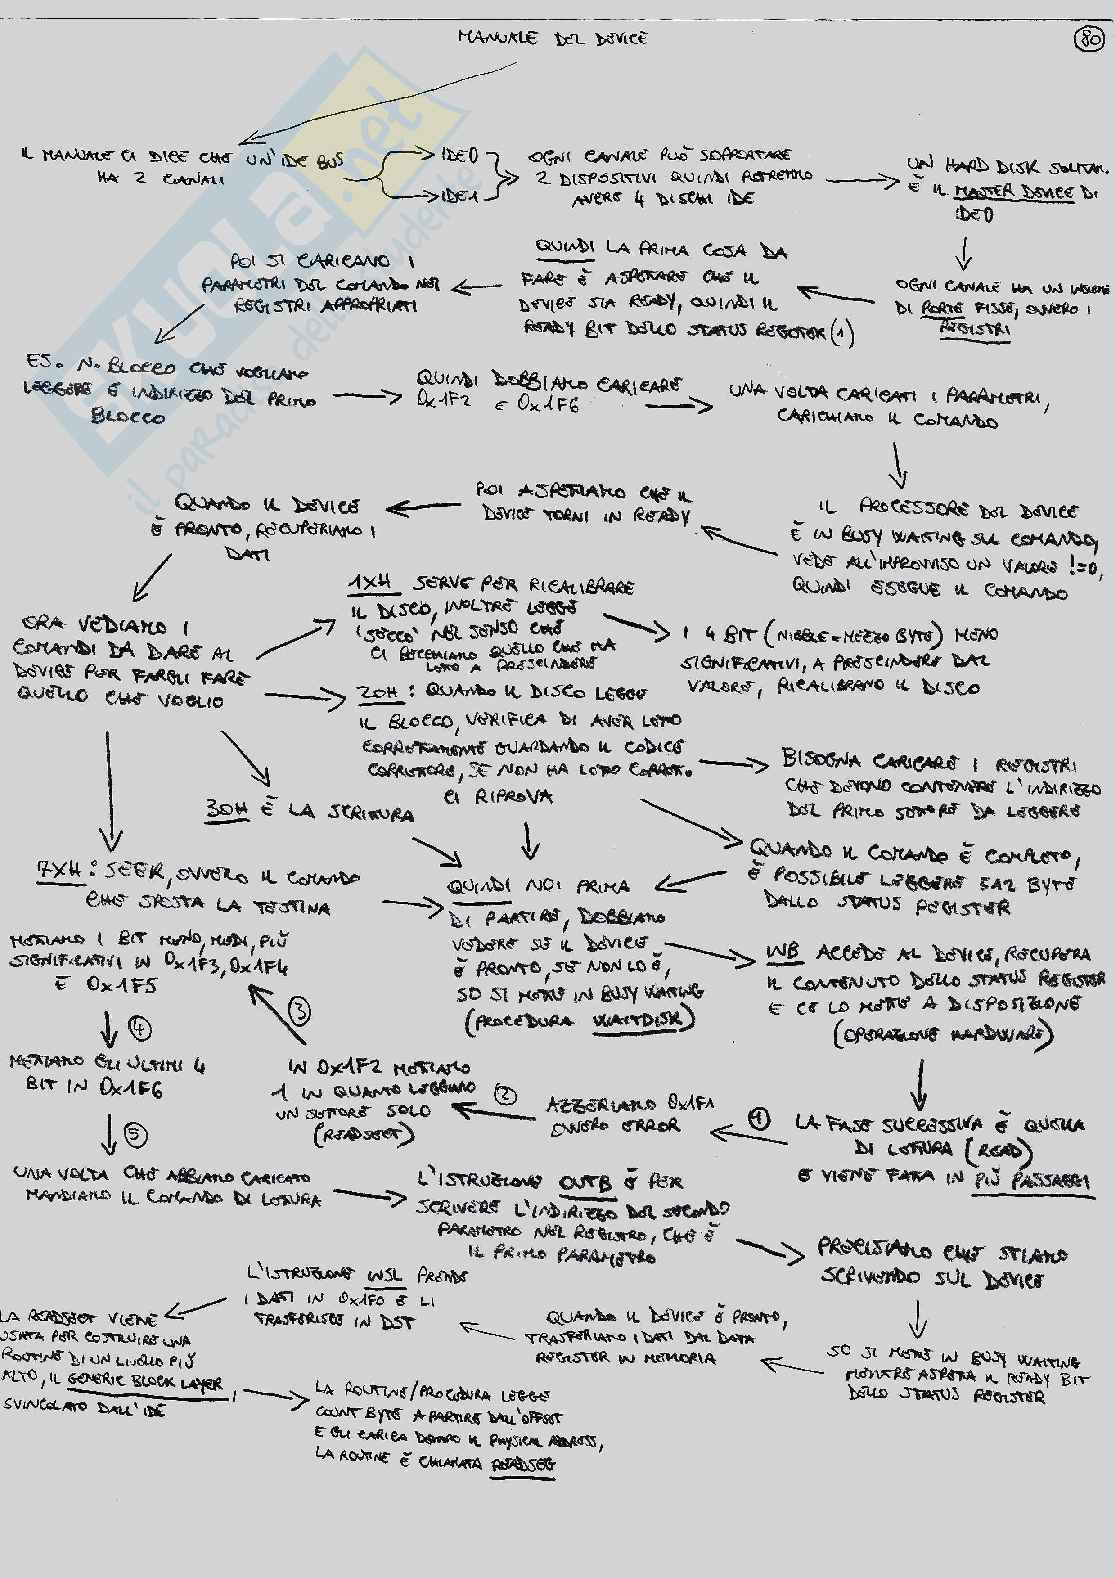 MANUALE DEL DEVICE
80
IL MANUALE CI DICE CHE UN'IDE BUS
HA 2 CANALI
IDE0
IDE1
OGNI CANALE PUÒ SOPPORTARE
2 DISPOSITIVI QUINDI POTREMMO
AVERE 4 DISCHI IDE
UN HARD DISK SOLITAM.
È IL MASTER DEVICE DI
IDE0
OGNI CANALE HA UN INSIEME
DI PORTE FISSE, OVVERO I
REGISTRI
QUINDI LA PRIMA COSA DA
FARE È ASPETTARE CHE IL
DEVICE SIA READY, QUINDI IL
READY BIT DELLO STATUS REGISTER (1)
POI SI CARICANO I
PARAMETRI DEL COMANDO NEI
REGISTRI APPROPRIATI
ES. N. BLOCCO CHE VOGLIAMO
LEGGERE E INDIRIZZO DEL PRIMO
BLOCCO
QUINDI DOBBIAMO CARICARE
0x1F2 E 0x1F6
UNA VOLTA CARICATI I PARAMETRI,
CARICHIAMO IL COMANDO
IL PROCESSORE DEL DEVICE
È IN BUSY WAITING SUL COMANDO,
VEDE ALL'IMPROVVISO UN VALORE !=0,
QUINDI ESEGUE IL COMANDO
POI ASPETTIAMO CHE IL
DEVICE TORNI IN READY
QUANDO IL DEVICE
È PRONTO, RECUPERIAMO I
DATI
ORA VEDIAMO I
COMANDI DA DARE AL
DEVICE PER FARGLI FARE
QUELLO CHE VOGLIO
1XH SERVE PER RICALIBRARE
IL DISCO, INOLTRE LEGGE
"SECCO" NEL SENSO CHE
CI BECCHIAMO QUELLO CHE HA
LETTO A PRESCINDERE
I 4 BIT (NIBBLE=MEZZO BYTE) MENO
SIGNIFICATIVI, A PRESCINDERE DAL
VALORE, RICALIBRANO IL DISCO
20H: QUANDO IL DISCO LEGGE
IL BLOCCO, VERIFICA DI AVER LETTO
CORRETTAMENTE GUARDANDO IL CODICE
CORRETTORE, SE NON HA LETTO CORRETT.
CI RIPROVA
BISOGNA CARICARE I REGISTRI
CHE DEVONO CONTENERE L'INDIRIZZO
DEL PRIMO SETTORE DA LEGGERE
QUANDO IL COMANDO È COMPLETO,
È POSSIBILE LEGGERE 512 BYTE
DALLO STATUS REGISTER
30H È LA SCRITTURA
7XH: SEEK, OVVERO IL COMANDO
CHE SPOSTA LA TESTINA
QUINDI NOI PRIMA
DI PARTIRE, DOBBIAMO
VEDERE SE IL DEVICE
È PRONTO, SE NON LO È,
SO SI METTE IN BUSY WAITING
(PROCEDURA WAITDISK)
INB ACCEDE AL DEVICE, RECUPERA
IL CONTENUTO DELLO STATUS REGISTER
E CE LO METTE A DISPOSIZIONE
(OPERAZIONE HARDWARE)
LA FASE SUCCESSIVA È QUELLA
DI LETTURA (READ)
E VIENE FATTA IN PIÙ PASSAGGI
1
AZZERIAMO 0x1F1
OVVERO ERROR
2
IN 0x1F2 METTIAMO
1 IN QUANTO LEGGIAMO
UN SETTORE SOLO
(READSECT)
3
METTIAMO I BIT MENO, MEDI, PIÙ
SIGNIFICATIVI IN 0x1F3, 0x1F4
E 0x1F5
4
METTIAMO GLI ULTIMI 4
BIT IN 0x1F6
5
UNA VOLTA CHE ABBIAMO CARICATO
MANDIAMO IL COMANDO DI LETTURA
L'ISTRUZIONE OUTB È PER
SCRIVERE L'INDIRIZZO DEL SECONDO
PARAMETRO NEL REGISTRO, CHE È
IL PRIMO PARAMETRO
PRECISIAMO CHE STIAMO
SCRIVENDO SUL DEVICE
SO SI METTE IN BUSY WAITING
MENTRE ASPETTA IL READY BIT
DELLO STATUS REGISTER
QUANDO IL DEVICE È PRONTO,
TRASFERIAMO I DATI DAL DATA
REGISTER IN MEMORIA
L'ISTRUZIONE INSL PRENDE
I DATI IN 0x1F0 E LI
TRASFERISCE IN DST
LA READSECT VIENE
USATA PER COSTRUIRE UNA
ROUTINE DI UN LIVELLO PIÙ
ALTO, IL GENERIC BLOCK LAYER,
SVINCOLATO DALL'IDE
LA ROUTINE/PROCEDURA LEGGE
COUNT BYTE A PARTIRE DALL'OFFSET
E GLI CARICA DENTRO IL PHYSICAL ADDRESS,
LA ROUTINE È CHIAMATA READSEG